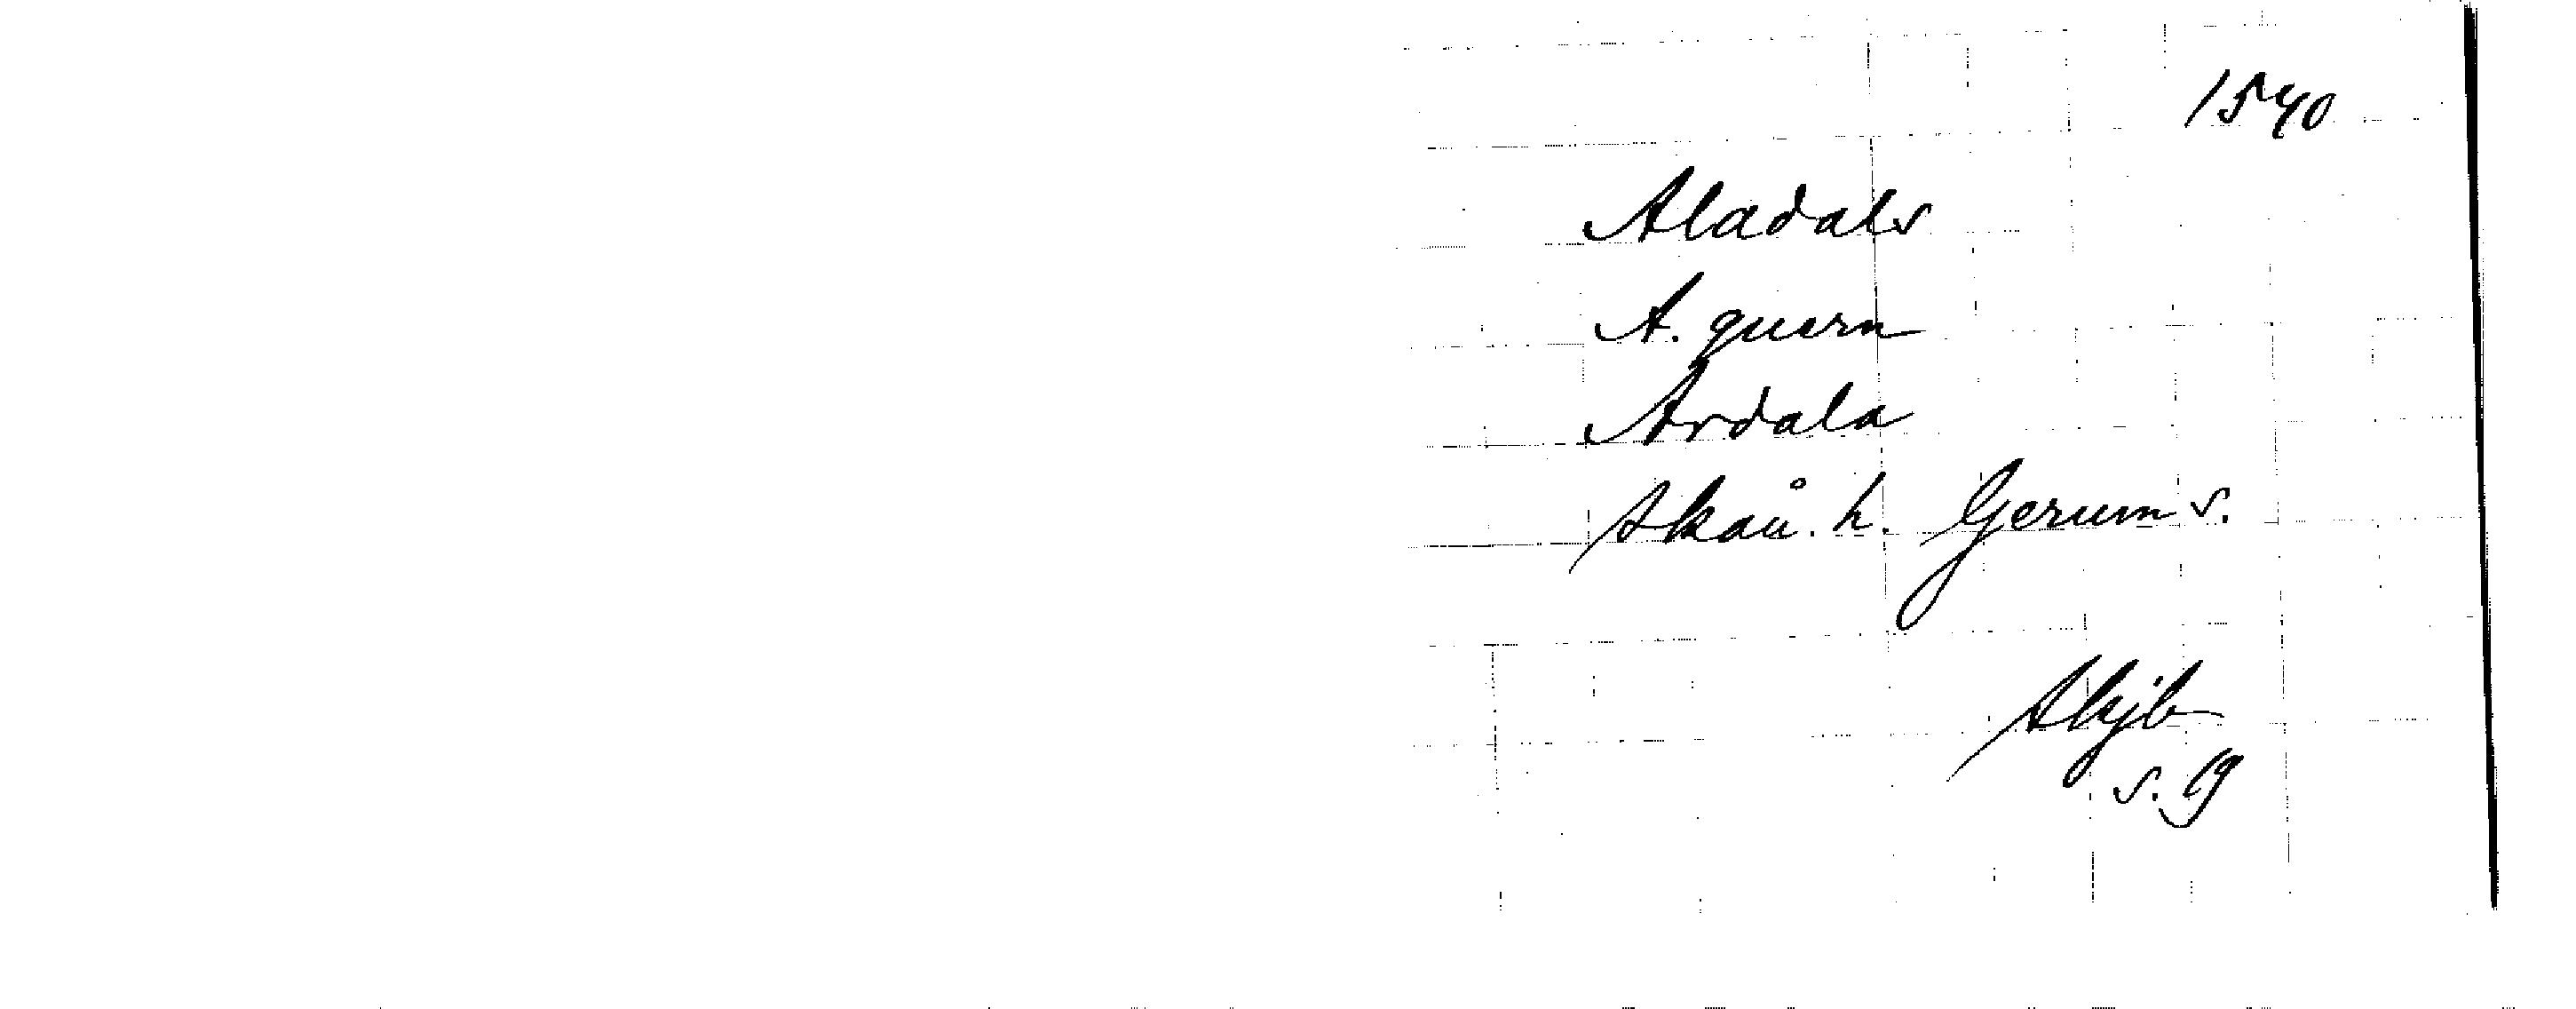 1540
Aladals
A. quern
Ardala
Skån. h. Gerum s.
Skjb
s. 19